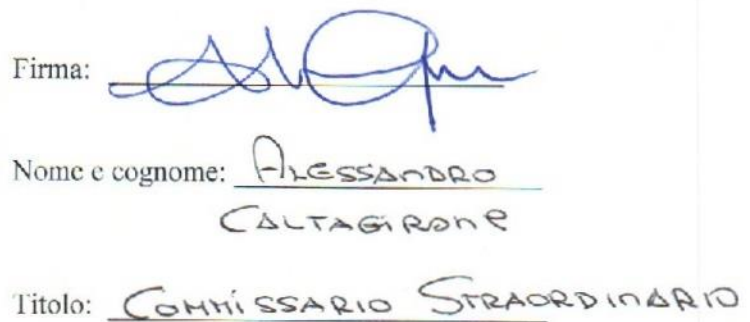 Firma:
Nome e cognome: ALESSANDRO
CALTAGIRONE
Titolo: COMMISSARIO STRAORDINARIO